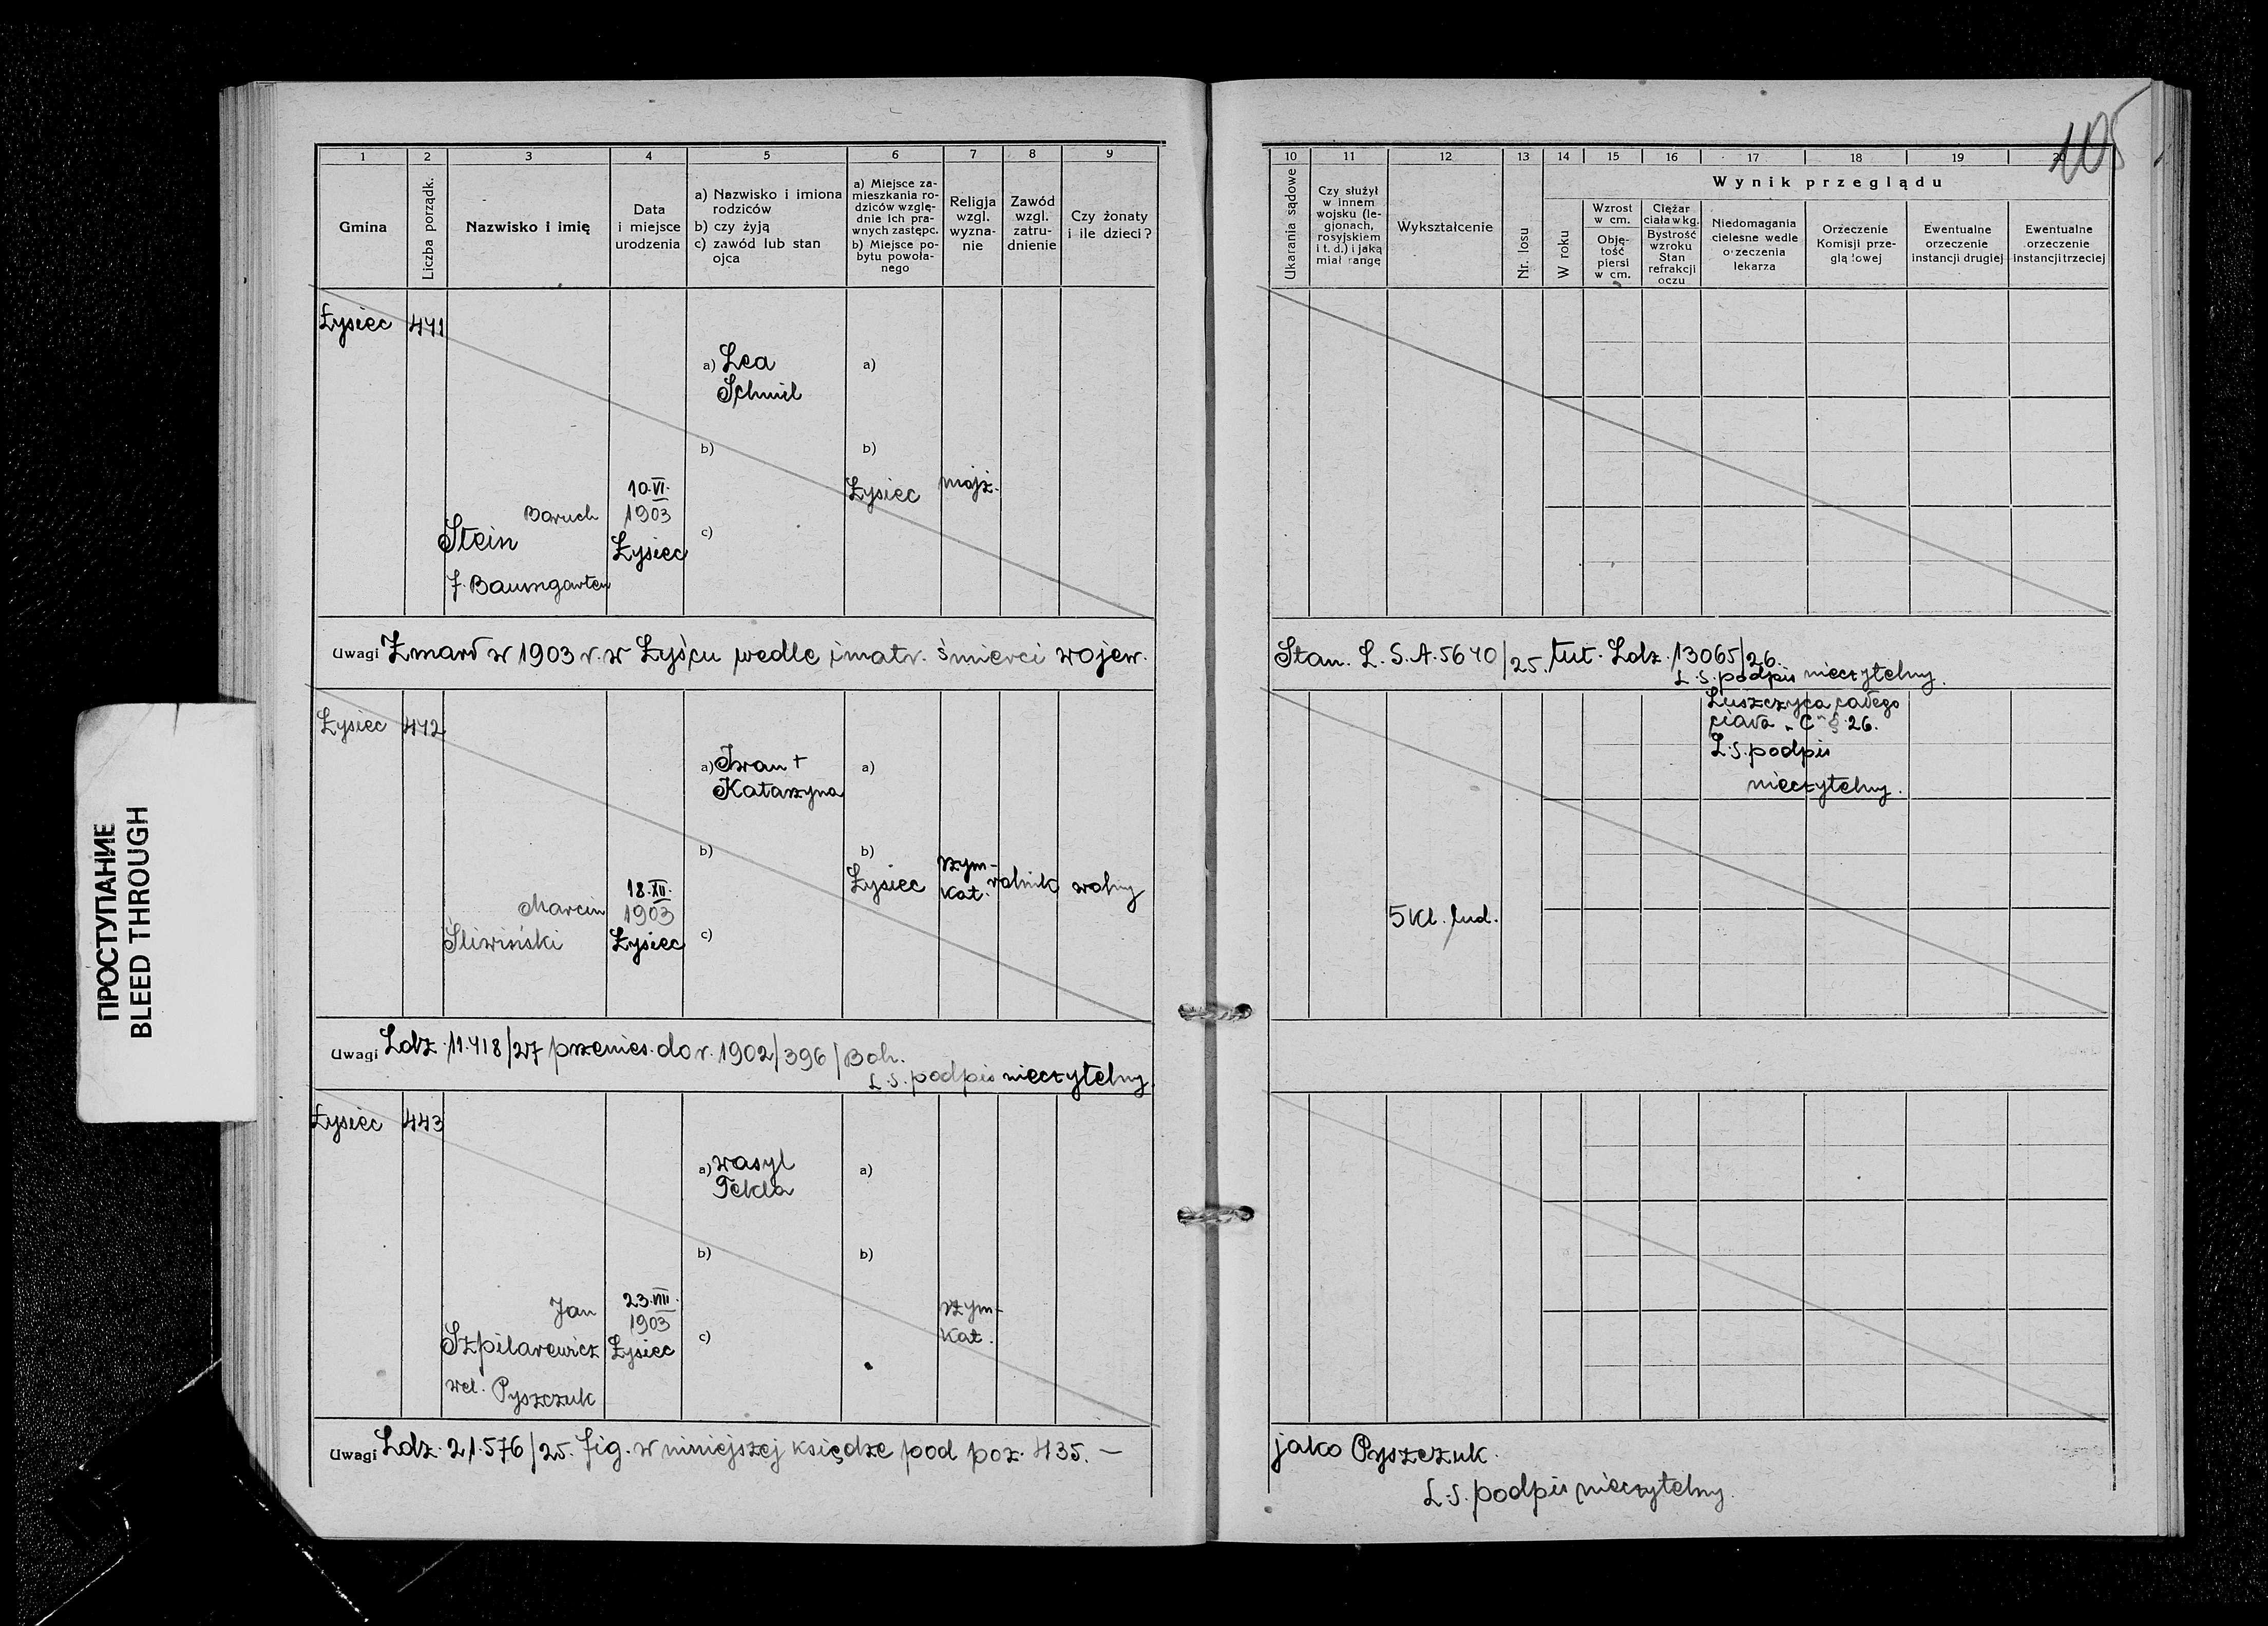 105
1 2 3 4 5 6 7 8 9
Gmina
Liczba porządk.
Nazwisko i imię
Data
i miejsce
urodzenia
a) Nazwisko i imiona
rodziców
b) czy żyją
c) zawód lub stan
ojca
a) Miejsce za-
mieszkania ro-
dziców wzglę-
dnie ich pra-
wnych zastępc.
b) Miejsce po-
bytu powoła-
nego
Religja
wzgl.
wyzna-
nie
Zawód
wzgl.
zatru-
dnienie
Czy żonaty
i ile dzieci?
10 11 12 13 14 15 16 17 18 19 20
Ukarania sądowe
Czy służył
w innem
wojsku (le-
gjonach,
rosyjskiem
i t. d.) i jaką
miał rangę
Wykształcenie
Nr. losu
Wynik przeglądu
W roku
Wzrost
w cm.
Obję-
tość
piersi
w cm.
Ciężar
ciała w kg.
Bystrość
wzroku
Stan
refrakcji
oczu
Niedomagania
cielesne wedle
orzeczenia
lekarza
Orzeczenie
Komisji prze-
glądowej
Ewentualne
orzeczenie
instancji drugiej
Ewentualne
orzeczenie
instancji trzeciej
Łysiec 441
a) Lea
Schmil
a)
b)
b)
Łysiec mojż.
10.VI.
Baruch 1903
Stein Łysiec
c)
f. Baumgarten
Uwagi Zmarł w 1903 r. w Łyścu wedle imatr. śmierci wojew.
Stan. L. S. A. 5640/25. tut. Ldz. 13065/26.
L. S. podpis nieczytelny.
Łysiec 442
a) Iwan +
Katarzyna
a)
b)
b)
Łysiec rzym- rolnik wolny
kat.
18.XII.
Marcin 1903
Śliwiński Łysiec
c)
Łuszczyca całego
ciała „C" § 26.
L. S. podpis
nieczytelny.
5 kl. lud.
Uwagi Ldz. 11.418/27 przenies. do r. 1902/396/Boh.
L. S. podpis nieczytelny.
Łysiec 443
a) Wasyl
Tekla
a)
b)
b)
23.VIII.
Jan 1903 rzym-
Szpilarewicz Łysiec kat.
c)
vel. Pyszczuk
Uwagi Ldz. 21.576/25. fig. w niniejszej księdze pod poz. 435. —
jako Pyszczuk.
L. S. podpis nieczytelny.
ПРОСТУПАНИЕ
BLEED THROUGH